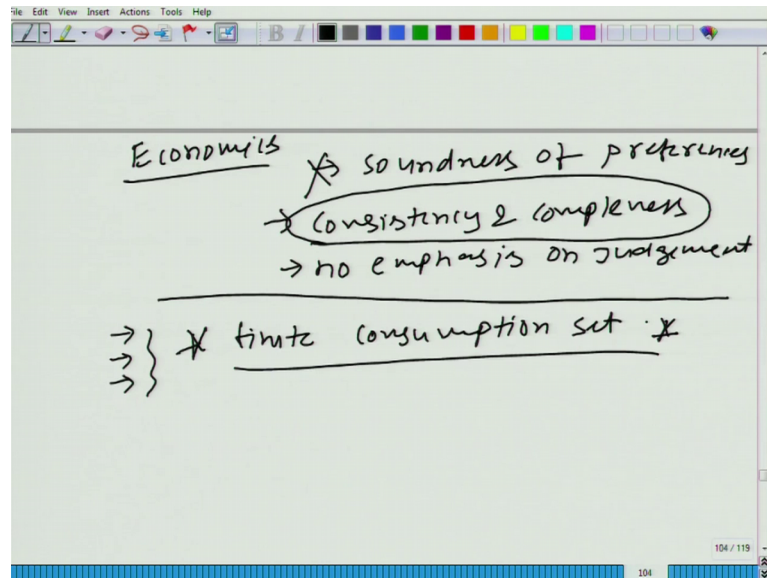 File Edit View Insert Actions Tools Help
B I
Economics → soundness of preferences
→ consistency & compleness
→ no emphasis on judgement
→
→ * finite consumption set *
→
104 / 119
104